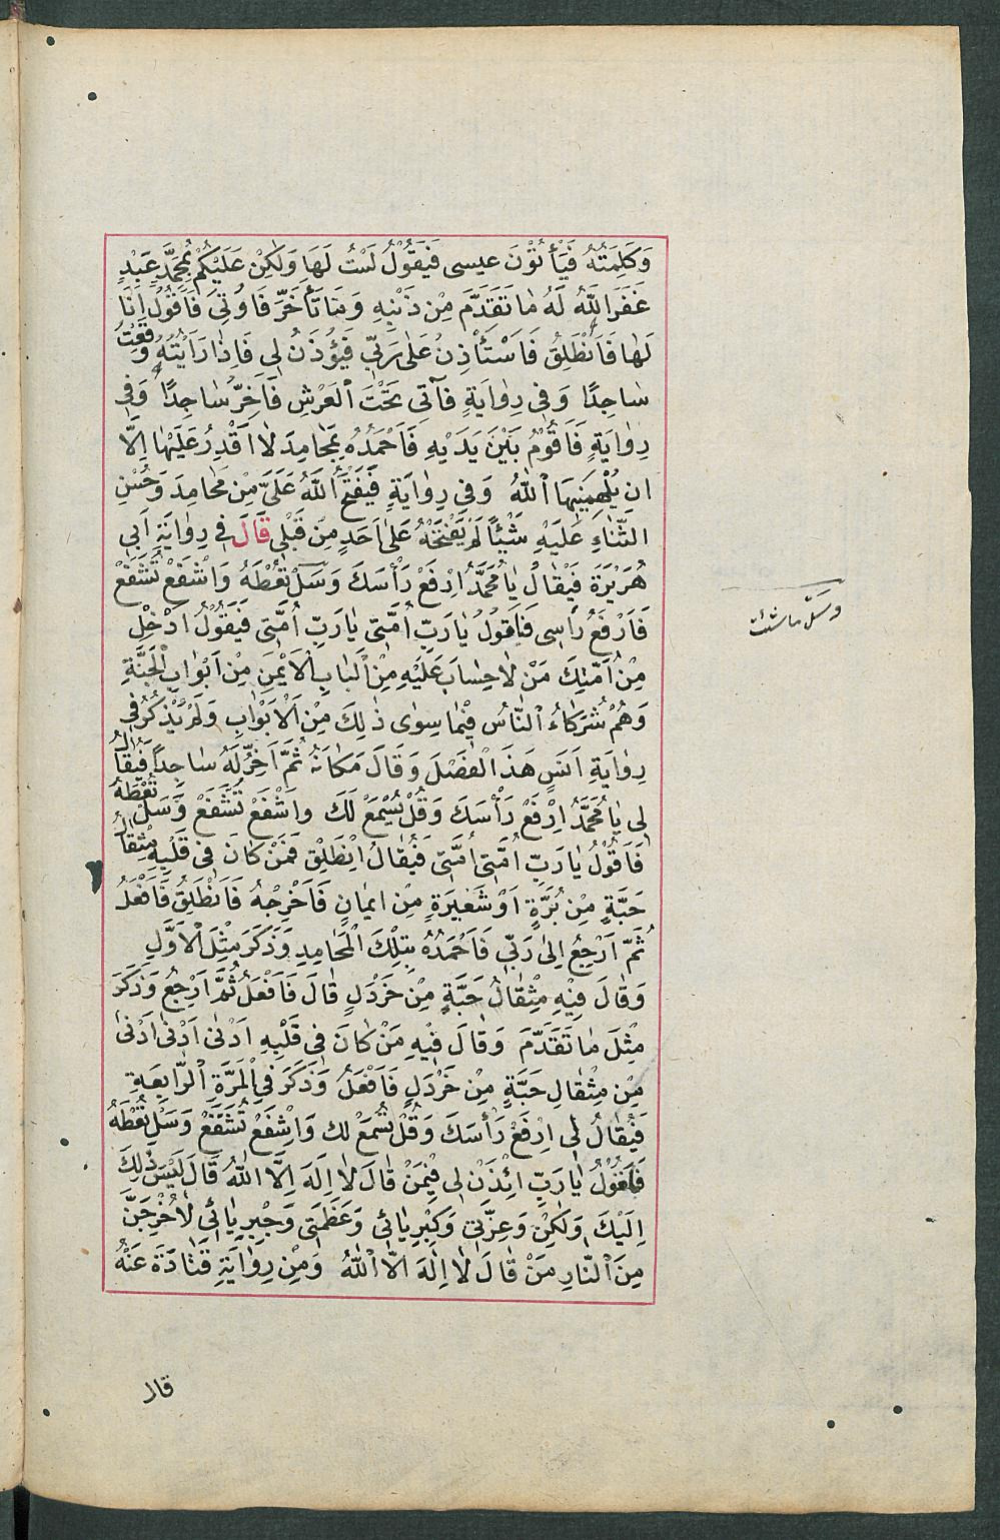 وَكَلِمَتُهُ فَيَأْتُوْنَ عيسى فَيَقُوْلُ لَسْتُ لَهَا وَلٰكِنْ عَلَيْكُمْ بِمُحَمَّدٍ عَبْدٍ
غَفَرَ اللّٰهُ لَهُ مٰا تَقَدَّمَ مِنْ ذَنْبِهِ وَمَا تَأَخَّرَ فَاُوتى فَاَقُوْلُ اَنَا
لَهٰا فَاَنْطَلِقُ فَاَسْتَأْذِنُ عَلٰى رَبّى فَيُؤْذَنُ لى فَاِذٰا رَاَيْتُهُ وَقَعْتُ
سٰاجِدًا وَفى رِوٰايَةٍ فَآتى تَحْتَ الْعَرْشِ فَاَخِرُّ سٰاجِدًا وَفى
رِوٰايَةٍ فَاَقُوْمُ بَيْنَ يَدَيْهِ فَاَحْمَدُهُ بِمَحٰامِدَ لٰا اَقْدِرُ عَلَيْهٰا اِلَّا
اَنْ يُلْهِمَنِيهَا اللّٰهُ وَفى رِوٰايَةٍ فَيَفْتَحُ اللّٰهُ عَلَىَّ مِنْ مَحٰامِدَ وَحُسْنِ
الثَّنٰاءِ عَلَيْهِ شَيْئًا لَمْ يَفْتَحْهُ عَلٰى اَحَدٍ مِنْ قَبْلى قَالَ فى رِوٰايَةِ اَبى
هُرَيْرَةَ فَيُقٰالُ يٰا مُحَمَّدُ اِرْفَعْ رَأْسَكَ وَسَلْ تُعْطَهُ وَاشْفَعْ تُشَفَّعْ
فَاَرْفَعُ رَاْسى فَاَقُولُ يٰا رَبِّ اُمَّتى يٰا رَبِّ اُمَّتى فَيَقُوْلُ اَدْخِلْ
مِنْ اُمَّتِكَ مَنْ لٰا حِسٰابَ عَلَيْهِ مِنَ الْبٰابِ الْاَيْمَنِ مِنْ اَبْوٰابِ الْجَنَّةِ
وَهُمْ شُرَكٰاءُ النَّاسِ فيْمٰا سِوٰى ذٰلِكَ مِنَ الْاَبْوٰابِ وَلَمْ يَذْكُرْ فى
رِوٰايَةِ اَنَسٍ هَذَا الْفَصْلَ وَقَالَ مَكٰانَهُ ثُمَّ اَخِرُّ لَهُ سٰاجِدًا فَيُقٰالُ
لى يٰا مُحَمَّدُ اِرْفَعْ رَأْسَكَ وَقُلْ يُسْمَعْ لَكَ وَاشْفَعْ تُشَفَّعْ وَسَلْ تُعْطَهُ
فَاَقُوْلُ يٰا رَبِّ اُمَّتى اُمَّتى فَيُقٰالُ اِنْطَلِقْ فَمَنْ كٰانَ فى قَلْبِهِ مِثْقٰالُ
حَبَّةٍ مِنْ بُرَّةٍ اَوْ شَعيرَةٍ مِنْ ايمٰانٍ فَاَخْرِجْهُ فَاَنْطَلِقُ فَاَفْعَلُ
ثُمَّ اَرْجِعُ اِلىٰ رَبّى فَاَحْمَدُهُ بِتِلْكَ الْمَحٰامِدِ وَذَكَرَ مِثْلَ الْاَوَّلِ
وَقٰالَ فيْهِ مِثْقٰالُ حَبَّةٍ مِنْ خَرْدَلٍ قٰالَ فَاَفْعَلُ ثُمَّ اَرْجِعُ وَذَكَرَ
مِثْلَ مٰا تَقَدَّمَ وَقٰالَ فيْهِ مَنْ كٰانَ فى قَلْبِهِ اَدْنٰى اَدْنٰى اَدْنٰى
مِنْ مِثْقٰالِ حَبَّةٍ مِنْ خَرْدَلٍ فَاَفْعَلُ وَذَكَرَ فى الْمَرَّةِ الرَّابِعَةِ
فَيُقٰالُ لى اِرْفَعْ رَأْسَكَ وَقُلْ تُسْمَعْ لك وَاشْفَعْ تُشَفَّعْ وَسَلْ تُعْطَهُ
فَاَقُوْلُ يٰا رَبِّ ائْذَنْ لى فيْمَنْ قٰالَ لٰا اِلَهَ اِلَّا اللّٰهُ قٰالَ لَيْسَ ذٰلِكَ
اِلَيْكَ وَلٰكِنْ وَعِزَّتى وَكِبْرِيٰائى وَعَظَمَتى وَجِبْرِيٰائى لَاُخْرِجَنَّ
مِنَ النّٰارِ مَنْ قٰالَ لٰا اِلٰهَ اِلَّا اللّٰهُ وَمِنْ رِوٰايَةِ قَتٰادَةَ عَنْهُ
وسل ما شئت
قال